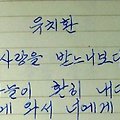 유치환
사랑을 받느니보다
늘이 환히 내다
게 와서 너에게